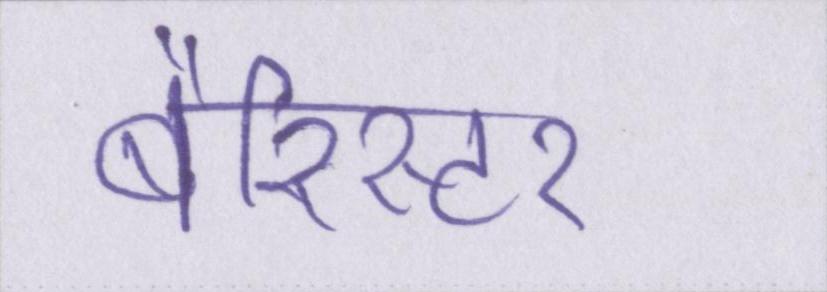 बैरिस्टर